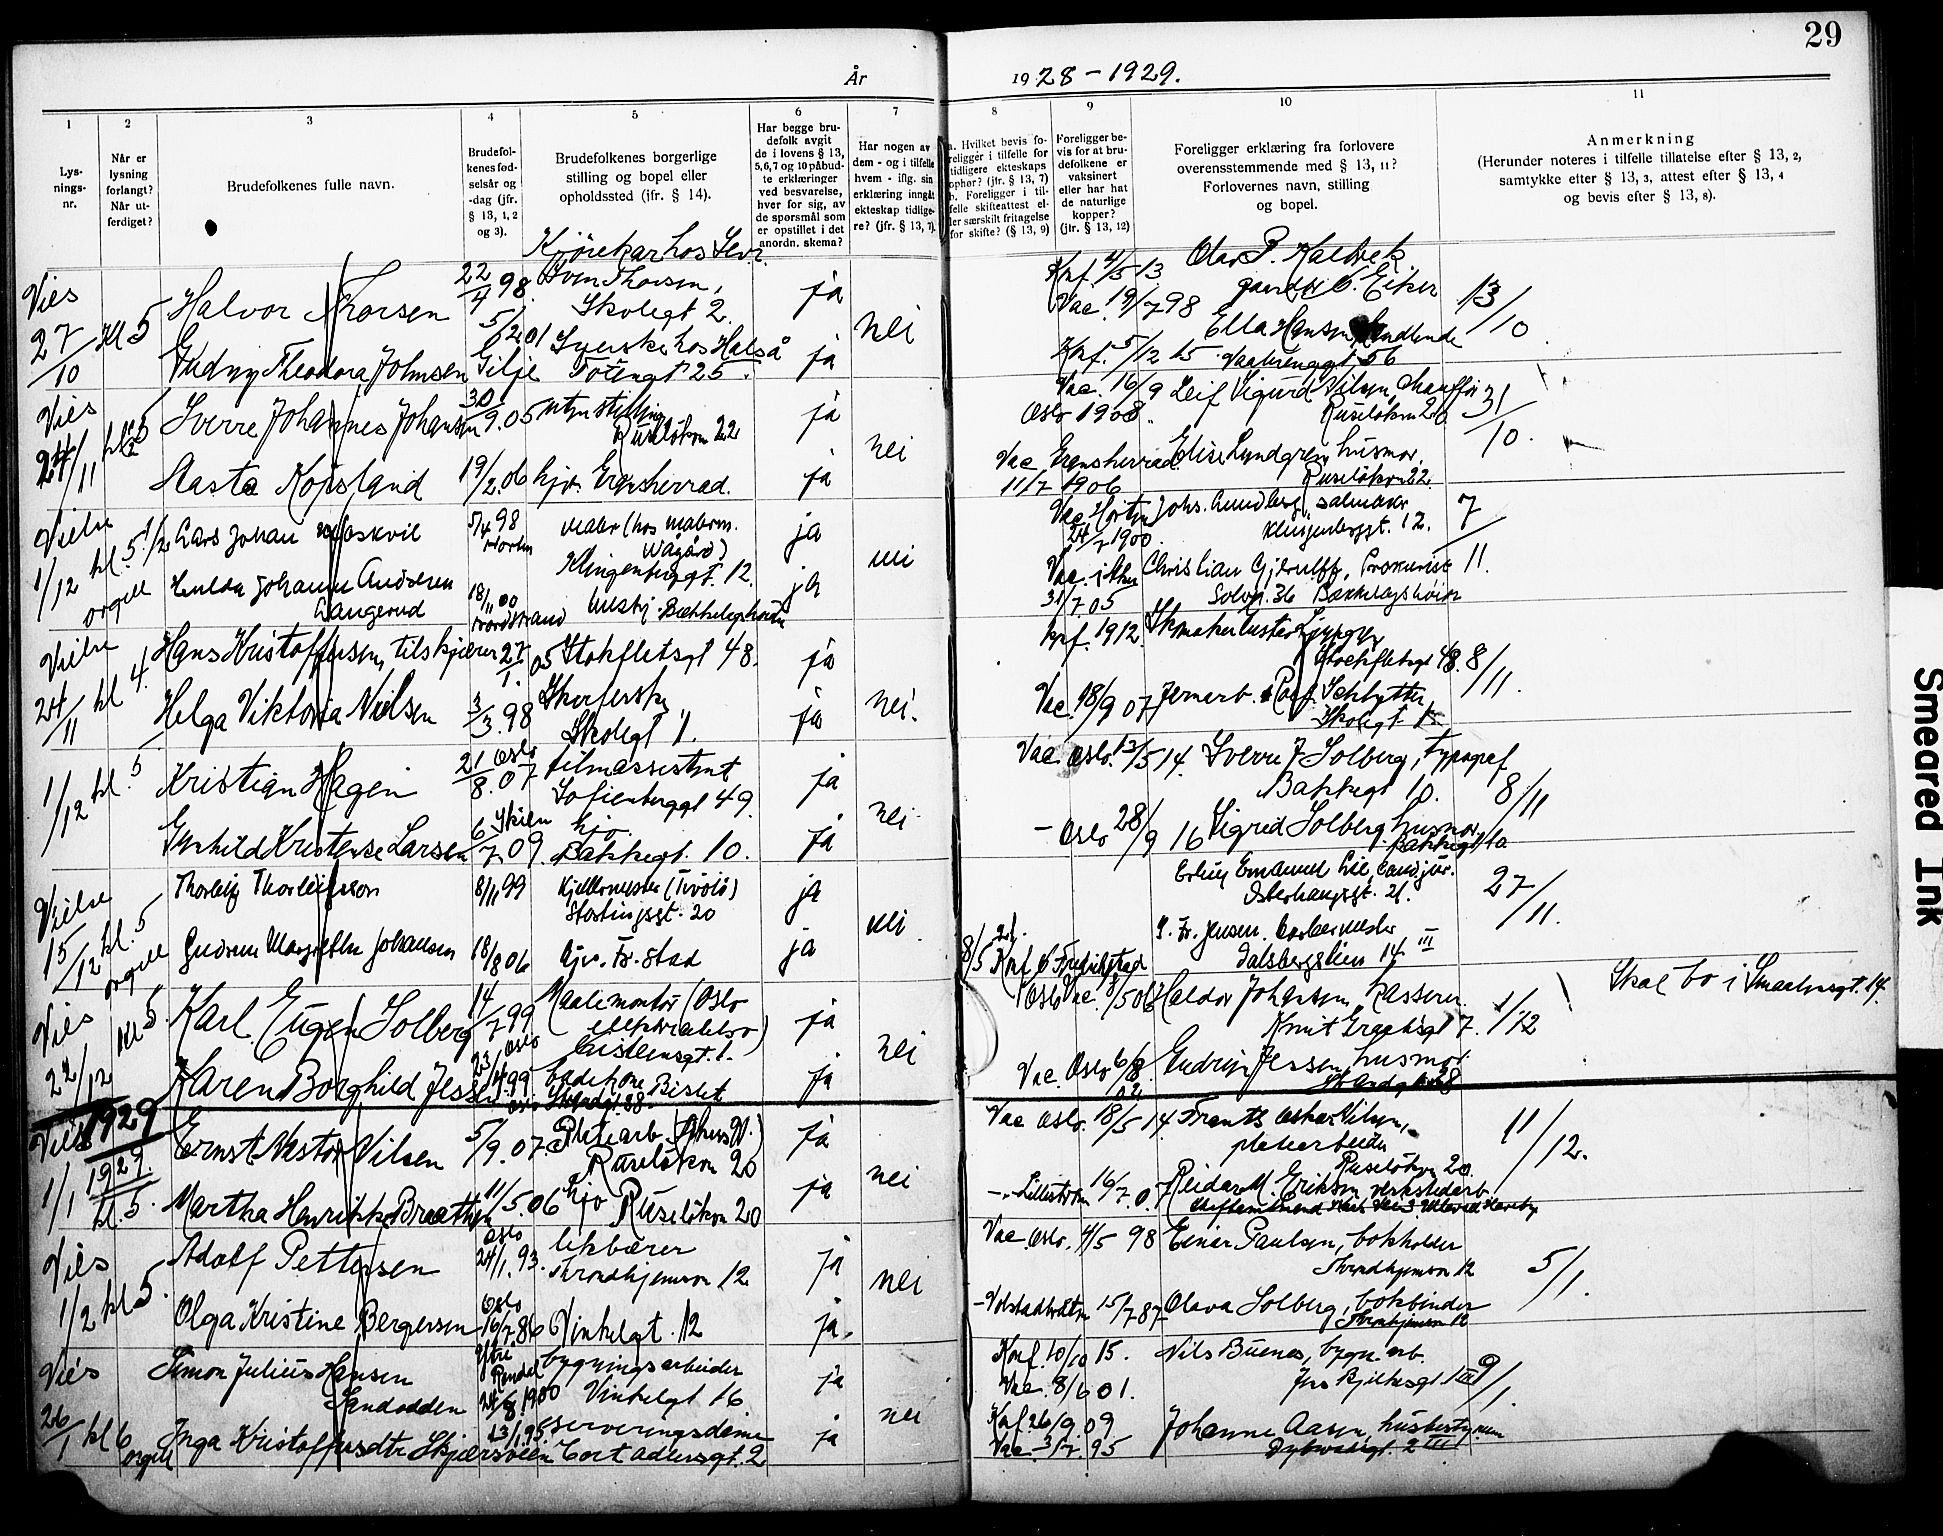 29
År
1928 - 1929.
1
Lys-
nings-
nr.
2
Når er
lysning
forlangt?
Når ut-
ferdiget?
3
Brudefolkenes fulle navn.
4
Brudefol-
kenes fød-
selsår og
-dag (jfr.
§ 13, 1, 2
og 3).
5
Brudefolkenes borgerlige
stilling og bopel eller
opholdssted (jfr. § 14).
6
Har begge bru-
defolk avgit
de i lovens § 13,
5,6,7 og 10 påbud-
te erklæringer
ved besvarelse,
hver for sig, av
de spørsmål som
er opstillet i det
anordn. skema?
7
Har nogen av
dem - og i tilfelle
hvem - iflg. sin
erklæring inngått
ekteskap tidlige-
re? (jfr. § 13, 7).
8
a. Hvilket bevis fo-
religger i tilfelle for
tidligere ekteskaps
ophør? (jfr. § 13, 7)
b. Foreligger i til-
felle skifteattest el-
ler særskilt fritagelse
for skifte? (§ 13, 9)
9
Foreligger be-
vis for at bru-
defolkene er
vaksinert
eller har hat
de naturlige
kopper?
(jfr. § 13, 12)
10
Foreligger erklæring fra forlovere
overensstemmende med § 13, 11?
Forlovernes navn, stilling
og bopel.
11
Anmerkning
(Herunder noteres i tilfelle tillatelse efter § 13, 2,
samtykke efter § 13, 3, attest efter § 13, 4
og bevis efter § 13, 8).
Vies 27/10 kl 5
Halvor Thorsen 22/4 98 Kjørekar hos
Sven Thorsen, Skolegt 2. ja nei
Knf 4/5 13 Vac. 19/7 98 Olav P. Kalbrek gaardbr. Ø. Eiker 13/10
Gudny Theodora Johnsen 5/2 01 Gilje Syerske hos
Tøiengt 25. ja
Knf. 5/12 15 Ella Hansen, Vaalerenggt. 56
Vies 24/11 kl 5
Sverre Johannes Johansen 30/9.05 uten stilling Ruseløkvn 22 ja nei
Vac. 16/9 Oslo 1908. Leif Sigurd Nilsen, Chauffør Ruseløkvn 20 31/10.
Aasta Kopsland 19/2.06 hjv. Gransherrad. ja
Vac Gransherrad 11/7 1906 Elise Lyndgren husmor. Ruseløkvn 22.
Vielse 1/12 kl. 5 1/2 orgel
Lars Johan Moskvil 5/4 98 Horten Maler (hos malerm. Wagård) Klingenberggt. 12. ja nei
Vac Horten 24/7 1900. Johs. Lundberg, salmaker Klingenberggt. 12. 7/11.
Hulda Johanne Andersen Langerud 18/11 00 Nordstrand husbj. Bækkelagshøiden ja
Vac. i Aker 31/7 05 Christian Gjerulff, Prokurist Solvn. 36 Bækkelagshøiden
Vielse 24/11 kl 4.
Hans Kristoffersen, tilskjærer 27/1. 05 Stokfletsgt 48. ja nei.
Knf. 1912. Skomaker Gustav Stockfletsgt 48. 8/11.
Helga Viktoria Nielsen 3/3.98 Skolegt 1. ja
Vac. 18/9 07 Jernarb. Skolegt 1.
1/12 kl. 5
Kristian Hagen 21/8.07 Oslo filmassistent Sofienberggt 49. ja nei
Vac. Oslo. 13/5 14. Sverre J Solberg, typograf Bakkegt 10. 8/11
Gunhild Kristense Larsen 6/7.09 Skien hjv. Bakkegt. 10. ja
- Oslo 28/9 16 Sigrid Solberg, husmor, Bakkegt 10
Vielse 15/12 kl. 5 orgel
Thorleif Thorleifsson 8/11 99 Kjeldermester (Tivoli) Stortingsgt. 20 ja nei
Erling Emanuel Lie, Cand. jur. Osterhausgt. 21. 27/11.
Gudrun Margrethe Johansen 18/8 06 hjv. Fr.stad ja
Knf Fredrikstad P. Fr. Jensen Barbermester Dalsbergstien 14 III
Vies 22/12 kl 5
Karl Eugen Solberg 14/7 99 Oslo Maalermontør (Oslo elektr.) ja nei
Oslo Vac. 8/5 06 Haldor Johansen, Kasserer. Knut Graahsgt 7. 1/12 Skal bo i Smaalensgt. 14.
Karen Borghild Jessen 23/4 99 Oslo badekone Bislet ja
Vac. Oslo 6/8 02 Gudrun Jessen, husmor
1929
Vies 1/1 1929. kl. 5.
Ernst Nestor Nilsen 5/9.07 Platearb. Ruseløkvn 20 ja nei
Vac Oslo. 18/5 14 Frants Oskar Nilsen, platearbeider Ruseløkvn 20. 11/12.
Martha Henrikke Braathen 11/5.06 hjv Ruseløkvn 20 ja
-„- Lillestrøm 16/7.07 Reidar M. Eriksen verkstedarb.
Vies 1/2 kl 5.
Adolf Pettersen Oslo 24/1.93. likbærer Throndhjemsvn 12 ja nei
Vac. Oslo. 4/5 98 Einar Paulsen, bokholder Throndhjemsvn 12 5/1.
Olga Kristine Bergersen Oslo 16/7.86 Vinkelgt. 12 ja.
15/7 87 Olava Solberg, bokbinder Throndhjemsvn 12
Vies 26/1 kl 6 orgel
Simon Julius Hansen Sandodden Rendal 24/8.1900 bygningsarbeider Vinkelgt 16 ja nei
Knf. 10/10 15. Vac. 8/6 01. Nils Buenes, bygn. arb. 9/1.
Inga Kristoffersdtr Skjærsveen 13/1.95 serveringsdame Cort Adlersgt. 2 ja
Knf. 26/9 09 Vac. 3/7. 95 Johanne Aasen, husbestyrerinne Dybwadsgt. 2 III
Smeared Ink